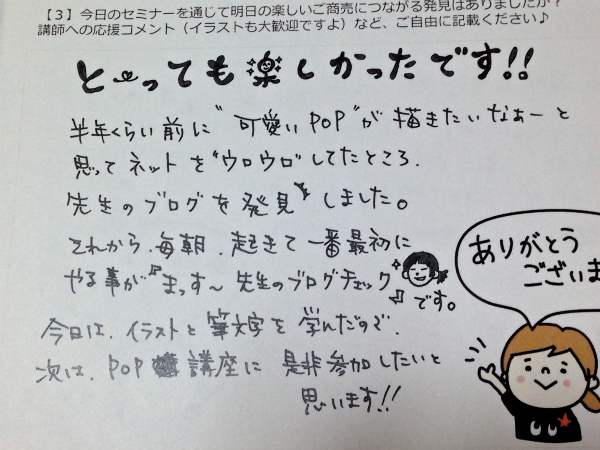 【３】今日のセミナーを通じて明日の楽しいご商売につながる発見はありましたか？
講師への応援コメント（イラストも大歓迎ですよ）など、ご自由に記載ください♪
とーっても楽しかったです!!
半年くらい前に"可愛いPOP"が描きたいなぁーと
思ってネットを"ウロウロ"してたところ、
先生のブログを発見しました。
それから、毎朝、起きて一番最初に
やる事が『まっす〜先生のブログチェック』です。
今日は、イラストと筆文字を学んだので、
次は、POP講座に是非参加したいと
思います!!
ありがとう
ございま